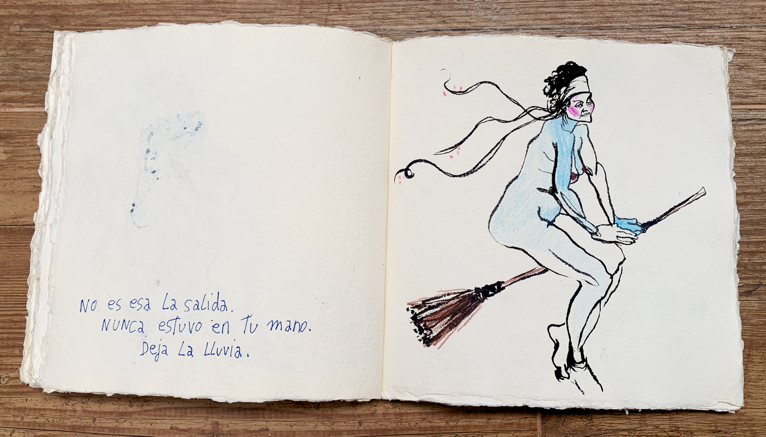 No es esa la salida.
NUNCA estuvo en tu mano.
Deja la lluvia.